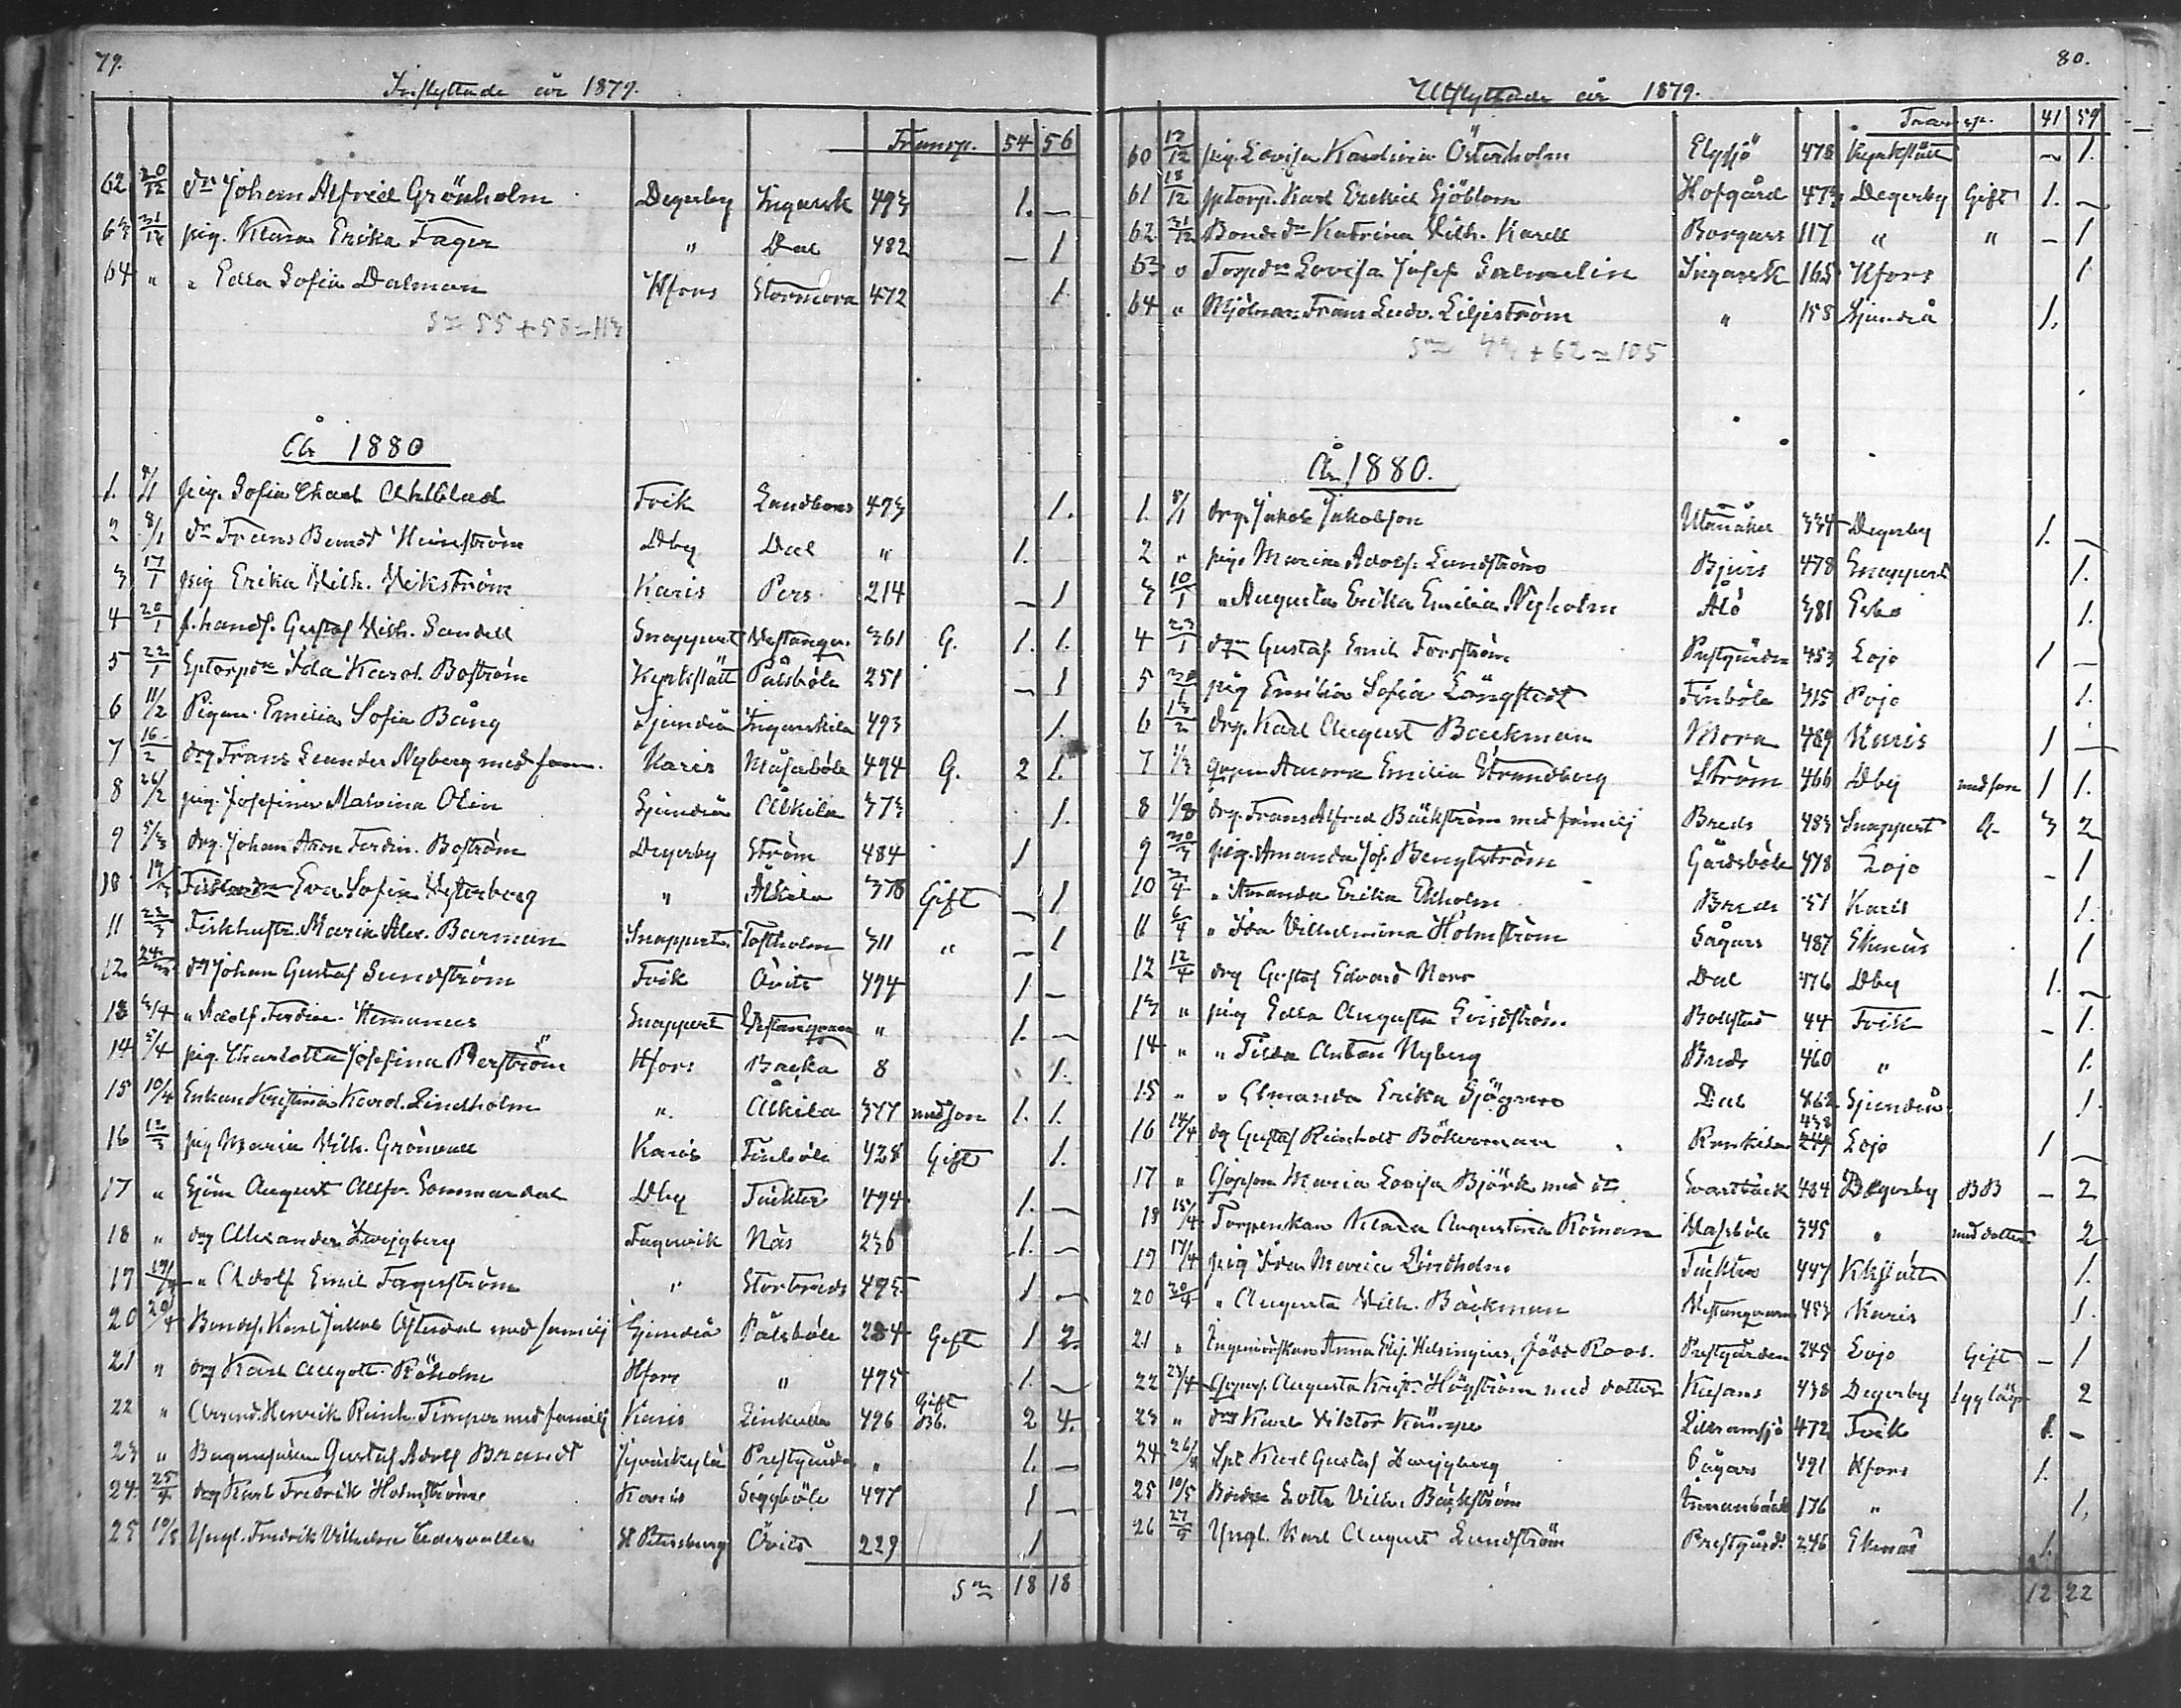 79.
Inflyttade år 1879.
Transp. 54 56
62 20/12 Dr. Johan Alfred Grönholm Degerby Ingarsk. 493 1. —
63 31/12 pig. Klara Erika Fager " Dal 482 — 1
64 " " Edla Sofia Dalman Hfors Stormora 472 1.
Sa 55 + 58 = 113
År 1880
1. pig. Sofia Ekblad Fvik 493 1.
2 8/1 Dr Frans Dby Dal " 1.
3 17/1 pig Erika Vilh. Vikström Karis Pers 214 — 1
4 20/1 f. Gustaf Vilh. Sandell Snappert. Vestanqv. 361 G. 1. 1.
5 22/1 Ida Karol. Boström Kyrkslätt Pålsböle 251 — 1
6 11/2 Pigan Emilia Sofia Bång Sjundeå Ingarskila 493 1.
7 16/2 drg Frans Leander Nyberg med fam. Karis Måsaböle 494 G. 2 1.
8 26/2 pig. Josefina Malvina Olin Sjundeå Älkila 373 1.
9 5/3 drg. Johan Aron Ferdin. Boström Degerby Ström 484 1
10 19/3 Eva Sofia Vesterberg " Älkila 378 Gift — 1
11 22/3 Maria Alex. Barman Snappert. Tostholm 311 " — 1
12 24/3 dg Johan Gustaf Sundström Fvik Övits 494 1 —
13 3/4 " Adolf Ferdin. Snappert Vestanqvarn " 1. —
14 5/4 pig. Charlotta Josefina Berström Hfors Backa 8 1.
15 10/4 Enkan Kristina Karol. Lindholm " Älkila 377 med son 1. 1.
16 12/3 pig Maria Vilh. Grönvall Karis Finböle 428 Gift 1.
17 " Sjöm August Alfr. Sommardal Dby Täckter 494 1. —
18 " drg Alexander Zweygberg Fagervik Näs 236 1. —
19 19/4 " Adolf Emil Fagerström " Storbreds 495 1 —
20 20/4 Bondes. Karl Jakob Österdal med familj Sjundeå Pålsböle 234 Gift 1 2.
21 " drg Karl August Röholm Hfors " 495 1. —
22 " Arrend. Henrik Reinh. Timper med familj Karis Linkulla 496 Gift Bb. 2 4.
23 " Gustaf Adolf Brandt Jyväskylä Prestgården " 1. —
24. 25/4 drg Karl Fredrik Holmström Karis Siggböle 497 1 —
25 10/5 Yngl. Fredrik Vilhelm Cedervaller St Petersburg Övits 229 1
Sm 18 18
80.
Utflyttade år 1879.
Transp. 41 59
60 12/12 pig. Lovisa Karolina Österholm Elgsjö 478 Kyrkslätt — 1.
61 18/12 Karl Erikid Sjöblom Hofgård 473 Degerby Gift 1. —
62 31/12 Bonde dr Katrina Vilh. Karell Borgars 117 " " — 1
63 " Torpdr Lovisa Josef. Salmelin Ingarsk. 165 Hfors 1
64 " Mjölnar. Frans Ludv. Liljeström " 158 Sjundeå 1.
Sm 43 + 62 = 105
År 1880.
1. 5/1 drg. Jakob Jakobson Utanåker 334 Degerby 1. —
2 " pig. Maria Adolf. Lundström Bjurs 478 Snappert. 1.
3 10/1 " Augusta Erika Emilia Nyholm Ålö 381 Esbo 1.
4 23/1 dg Gustaf Emil Forsström Prestgården 453 Lojo 1 —
5 30/1 pig Emilia Sofia Långstedt Finböle 415 Pojo 1.
6 13/2 drg. Karl August Backman Mora 489 Karis 1 —
7 1/3 Aurora Emilia Strandberg Ström 466 Dby med son 1 1.
8 1/3 drg. Frans Alfred Bäckström med familj Breds 483 Snappert G. 3 2
9 30/3 pig. Amanda Jos. Bengtström Gårdsböle 478 Lojo — 1
10 3/4 " Amanda Erika Ekholm Breds 51 Karis 1.
11 6/4 " Ida Vilhelmina Holmström Sågars 487 Ekenäs 1
12 12/4 drg Gustaf Edvard Nors Dal 476 Dby 1. —
13 " pig Edla Augusta Lindström Bollstad 44 Fvik — 1.
14 " " Tilda Anton. Nyberg Breds 460 " 1.
15 " " Amanda Erika Sjögren Dal 462 Sjundeå 1.
16 14/4 dg Gustaf Reinhold Bökerman 438 Lojo 1 —
17 " Maria Lovisa Björk med Svartbäck 484 Degerby BB — 2
18 15/4 Torpenkan Klara Augustina Röman Vassböle 345 " med dotter 2
19 17/4 pig Ida Maria Lindholm Täckter 447 Kkslätt 1.
20 20/4 " Augusta Vilh. Bäckman Vestanqvarn 453 Karis 1.
21 " Ingeniörskan Anna Elis. Helsingius, född Roos. Prestgården 245 Lojo Gift — 1
22 23/4 Augusta Krist. Högström med dotter Kusans 438 Degerby 2
23 " drg Karl Viktor Kämpe Lillramsjö 472 Fvik 1. —
24 26/4 Karl Gustaf Zweygberg Sågars 491 Hfors 1.
25 10/5 Lotta Vilh. Bäckström Innanbäck 176 " 1.
26 27/5 Yngl. Karl August Lundström Prestgård. 246 Ekenäs 1.
12 22